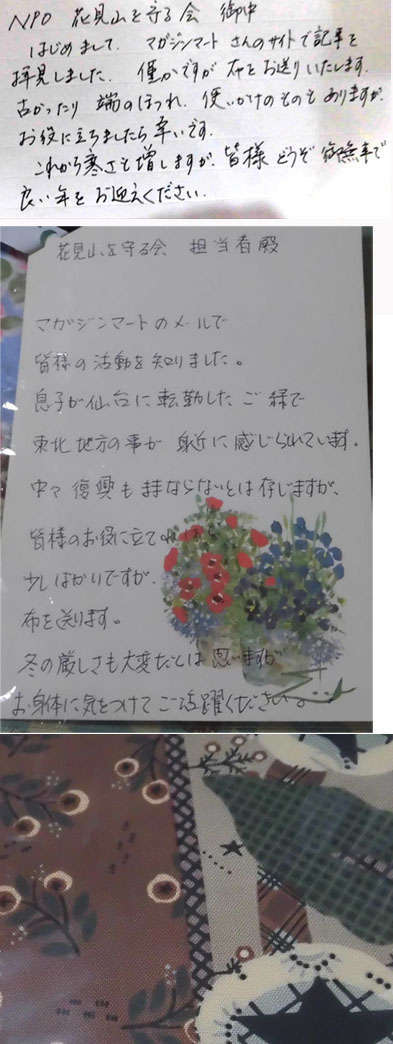 NPO 花見山を守る会 御中
はじめまして、マガジンマートさんのサイトで記事を
拝見しました。僅かですが布をお送りいたします。
古かったり 端のほつれ、使いかけのものもありますが、
お役に立ちましたら幸いです。
これから寒さも増しますが、皆様どうぞ御無事で
良い年をお迎えください。
花見山を守る会 担当者殿
マガジンマートのメールで
皆様の活動を知りました。
息子が仙台に転勤したご縁で
東北地方の事が身近に感じられています。
中々復興もままならないとは存じますが、
皆様のお役に立てれば
少しばかりですが、
布を送ります。
冬の厳しさも大変だとは思いますが
お身体に気をつけてご活躍ください。